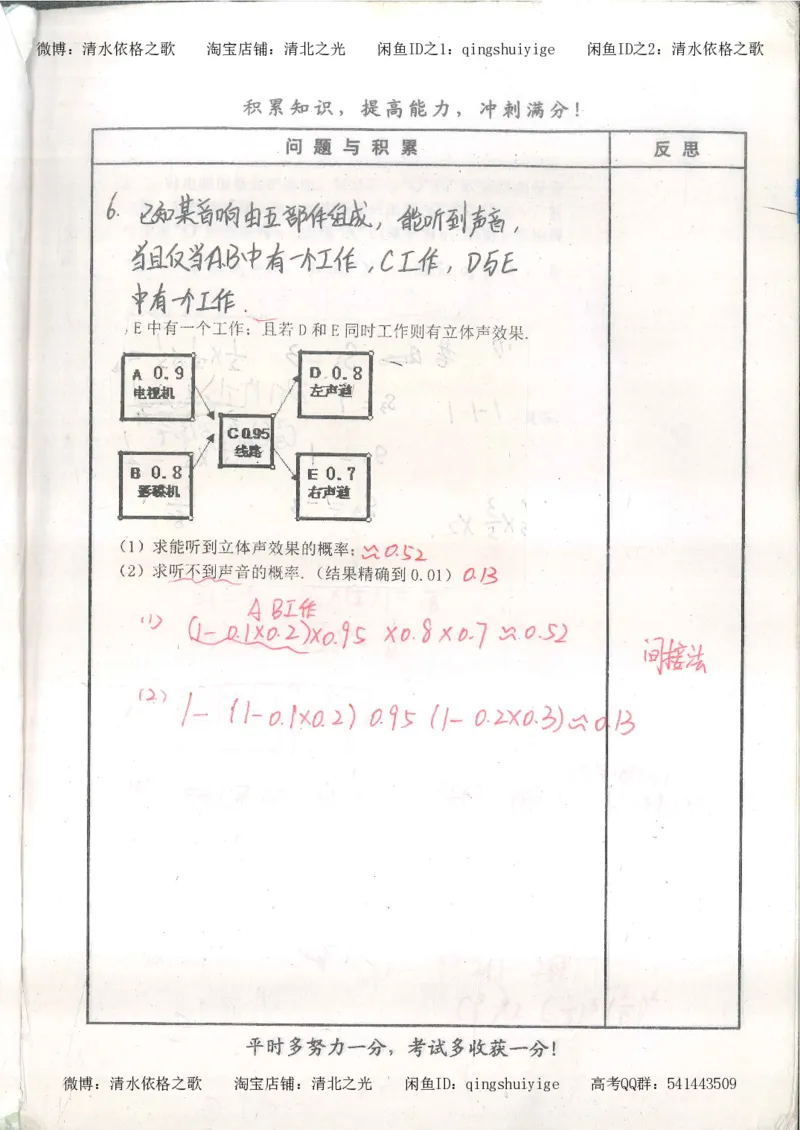 微博：清水依格之歌 淘宝店铺：清北之光 闲鱼ID之1：qingshuiyige 闲鱼ID之2：清水依格之歌
积累知识，提高能力，冲刺满分！
问题与积累 反思
6. 已知某音响由五部件组成，能听到声音，
当且仅当A.B中有一个工作，C工作，D与E
中有一个工作.
，E中有一个工作；且若D和E同时工作则有立体声效果.
A 0.9
电视机
D 0.8
左声道
C 0.95
线路
B 0.8
影碟机
E 0.7
右声道
（1）求能听到立体声效果的概率；≈0.52
（2）求听不到声音的概率.（结果精确到0.01）0.13
A B工作
(1) (1-0.1×0.2)×0.95 ×0.8×0.7≈0.52
间接法
(2) 1-(1-0.1×0.2) 0.95 (1-0.2×0.3)≈0.13
平时多努力一分，考试多收获一分！
微博：清水依格之歌 淘宝店铺：清北之光 闲鱼ID：qingshuiyige 高考QQ群：541443509